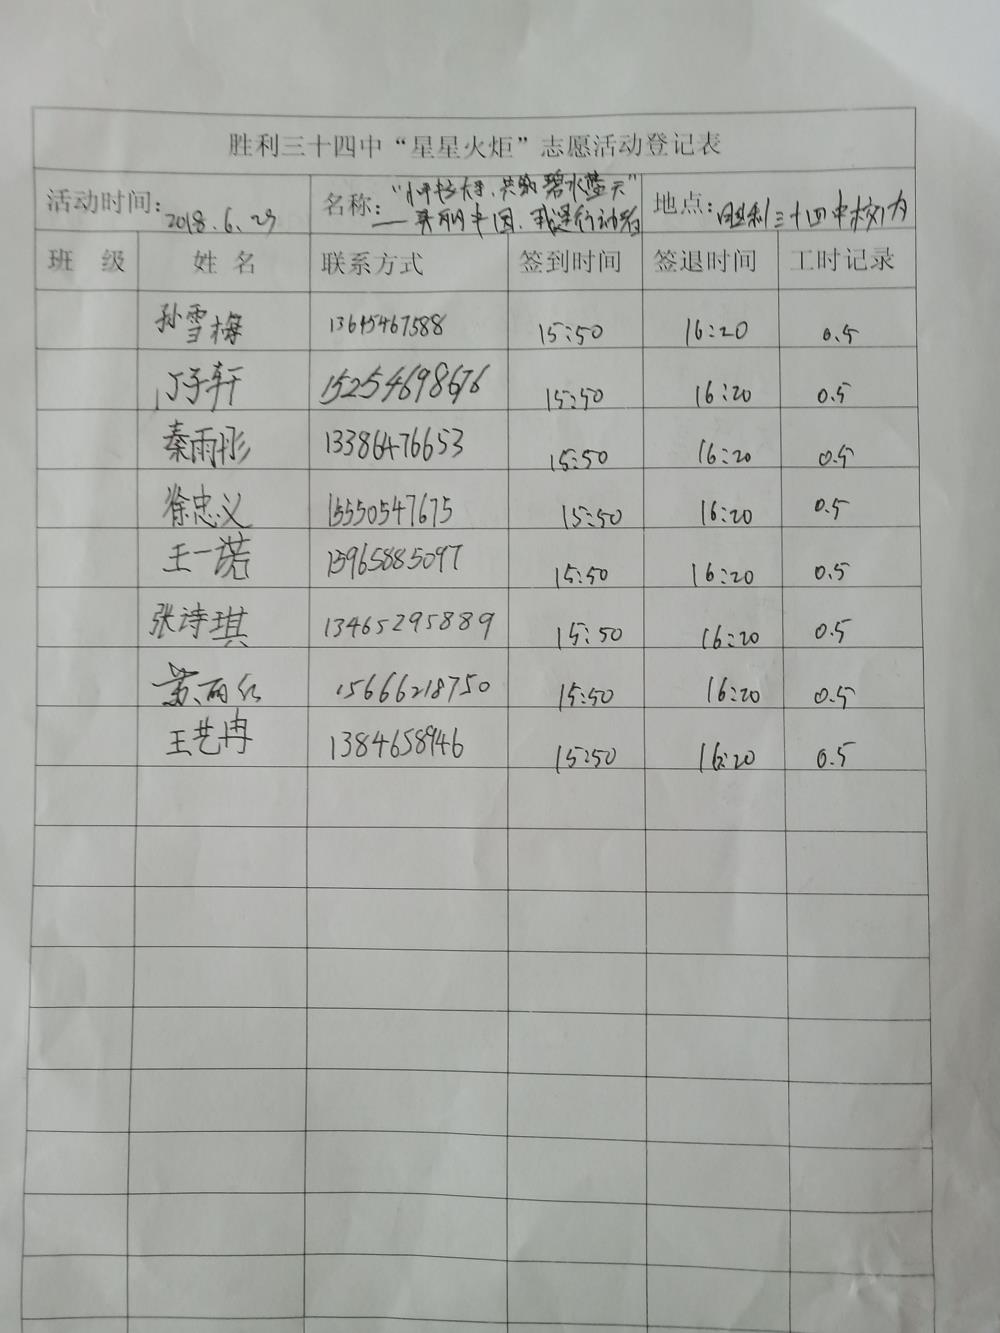 胜利三十四中“星星火炬”志愿活动登记表
活动时间: 2018.6.27 名称: “小手拉大手,共绘碧水蓝天” 地点: 胜利三十四中校内
——美丽中国,我是行动者
班 级 姓 名 联系方式 签到时间 签退时间 工时记录
孙雪梅 13615467588 15:50 16:20 0.5
丁子轩 15254698676 15:50 16:20 0.5
秦雨彤 13386476653 15:50 16:20 0.5
徐忠义 15550547675 15:50 16:20 0.5
王一诺 15965885097 15:50 16:20 0.5
张诗琪 13465295889 15:50 16:20 0.5
苏丽红 15666218750 15:50 16:20 0.5
王艺冉 1384658946 15:50 16:20 0.5